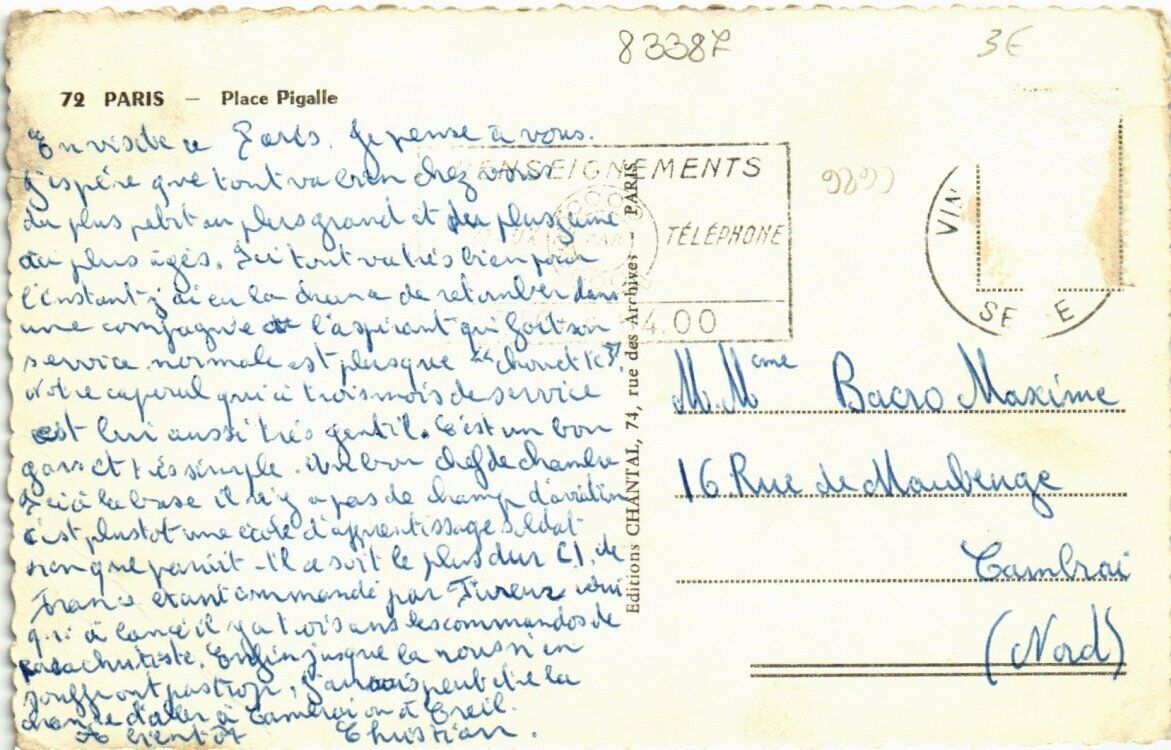 83387
3€
72 PARIS — Place Pigalle
En visite a Paris. Je pense à vous.
J'espère que tout va bien chez vous
du plus petit au plus grand et du plus jeune
au plus agés. Ici tout va très bien pour
l'instant j'ai eu la chance de retomber dans
une compagnie et l'aspirant qui fait son
service normale est plusque "chouette".
Notre caporal qui a trois mois de service
est lui aussi très gentil. C'est un bon
gars et très simple. Un bon chef de chambre
Ici à la base il n'y a pas de champ d'aviation
c'est plustot une école d'apprentissage soldat
rien que parait-il ce soit le plus dur C.I. de
France étant commandé par celui
qui à lancé il y a trois ans les commandos de
Parachutiste. Enfin jusque la nous n'en
souffront pas trop, J'aurais peut etre la
chance d'aller à Cambrai ou à Creil.
A bientôt Christian.
RENSEIGNEMENTS
TÉLÉPHONE
4.00
Editions CHANTAL, 74, rue des Archives — PARIS
VIN
SE E
M. Mme Bacro Maxime
16 Rue de Maubeuge
Cambrai
(Nord)